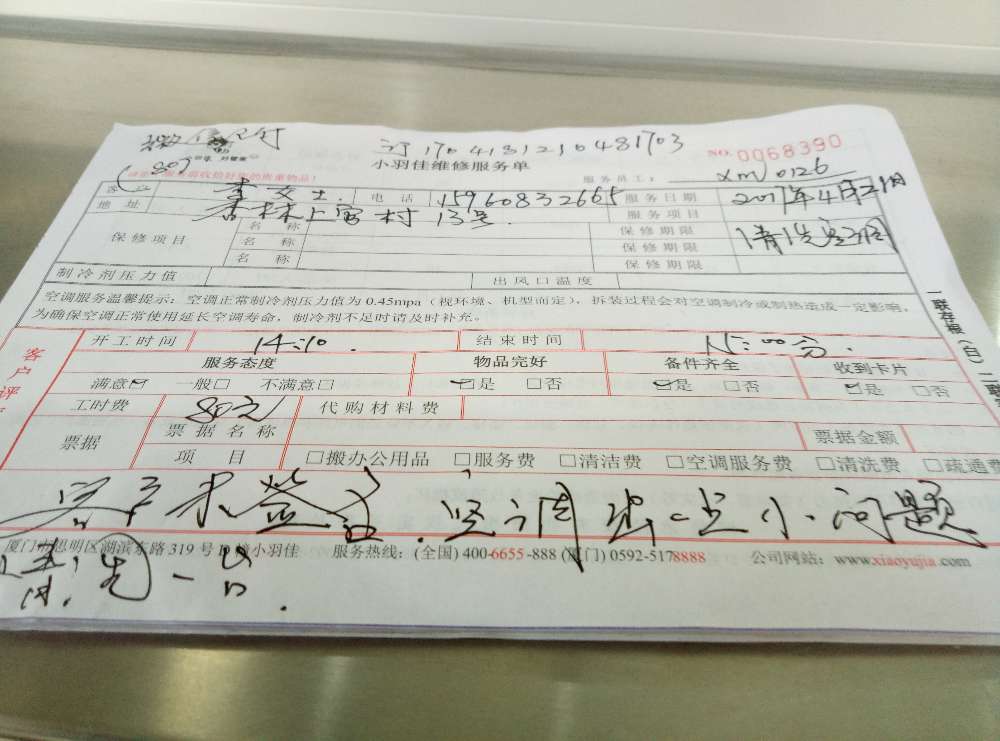 微信支付 订1704131210481703
小羽佳维修服务单 NO. 0068390
(80) 服务员工: xm0126
李女士. 电话 15960832665 服务日期 2017年4月21日
地址 杏林上宫村13号. 服务项目 清洗空调
保修项目 名称 保修期限
名称 保修期限
名称 保修期限
制冷剂压力值 出风口温度
空调服务温馨提示:空调正常制冷剂压力值为0.45mpa(视环境、机型而定),拆装过程会对空调制冷或制热造成一定影响,
为确保空调正常使用延长空调寿命,制冷剂不足时请及时补充。
一联存根(白)二联
客户评
开工时间 14:10. 结束时间 15:00分
服务态度 物品完好 备件齐全 收到卡片
满意☑ 一般□ 不满意□ ☑是 □否 ☑是 □否 ☑是 □否
工时费 80元 代购材料费
票据 票据名称 票据金额
项目 □搬办公用品 □服务费 □清洁费 □空调服务费 □清洗费 □疏通费
客户未签名.空调出一点小问题
厦门市思明区湖滨东路319号D 小羽佳 服务热线:(全国)400-6655-888(厦门)0592-5178888 公司网站:www.xiaoyujia.com
清洗一台.